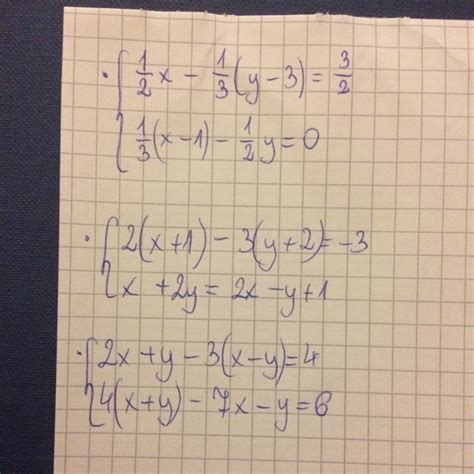 • { 1/2 x - 1/3 (y - 3) = 3/2
1/3 (x - 1) - 1/2 y = 0
• { 2(x + 1) - 3(y + 2) = -3
x + 2y = 2x - y + 1
• { 2x + y - 3(x - y) = 4
4(x + y) - 7x - y = 6